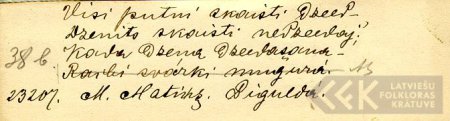 Visi putni skaisti dzeed-
Dzenits skaisti nedzeedaj;
38 b. Kada dzena dzeedašana –
Raibi svārki mugurā.
23207. M. Matisz. Sigulda.
LATVIEŠU
FOLKLORAS
KRĀTUVE